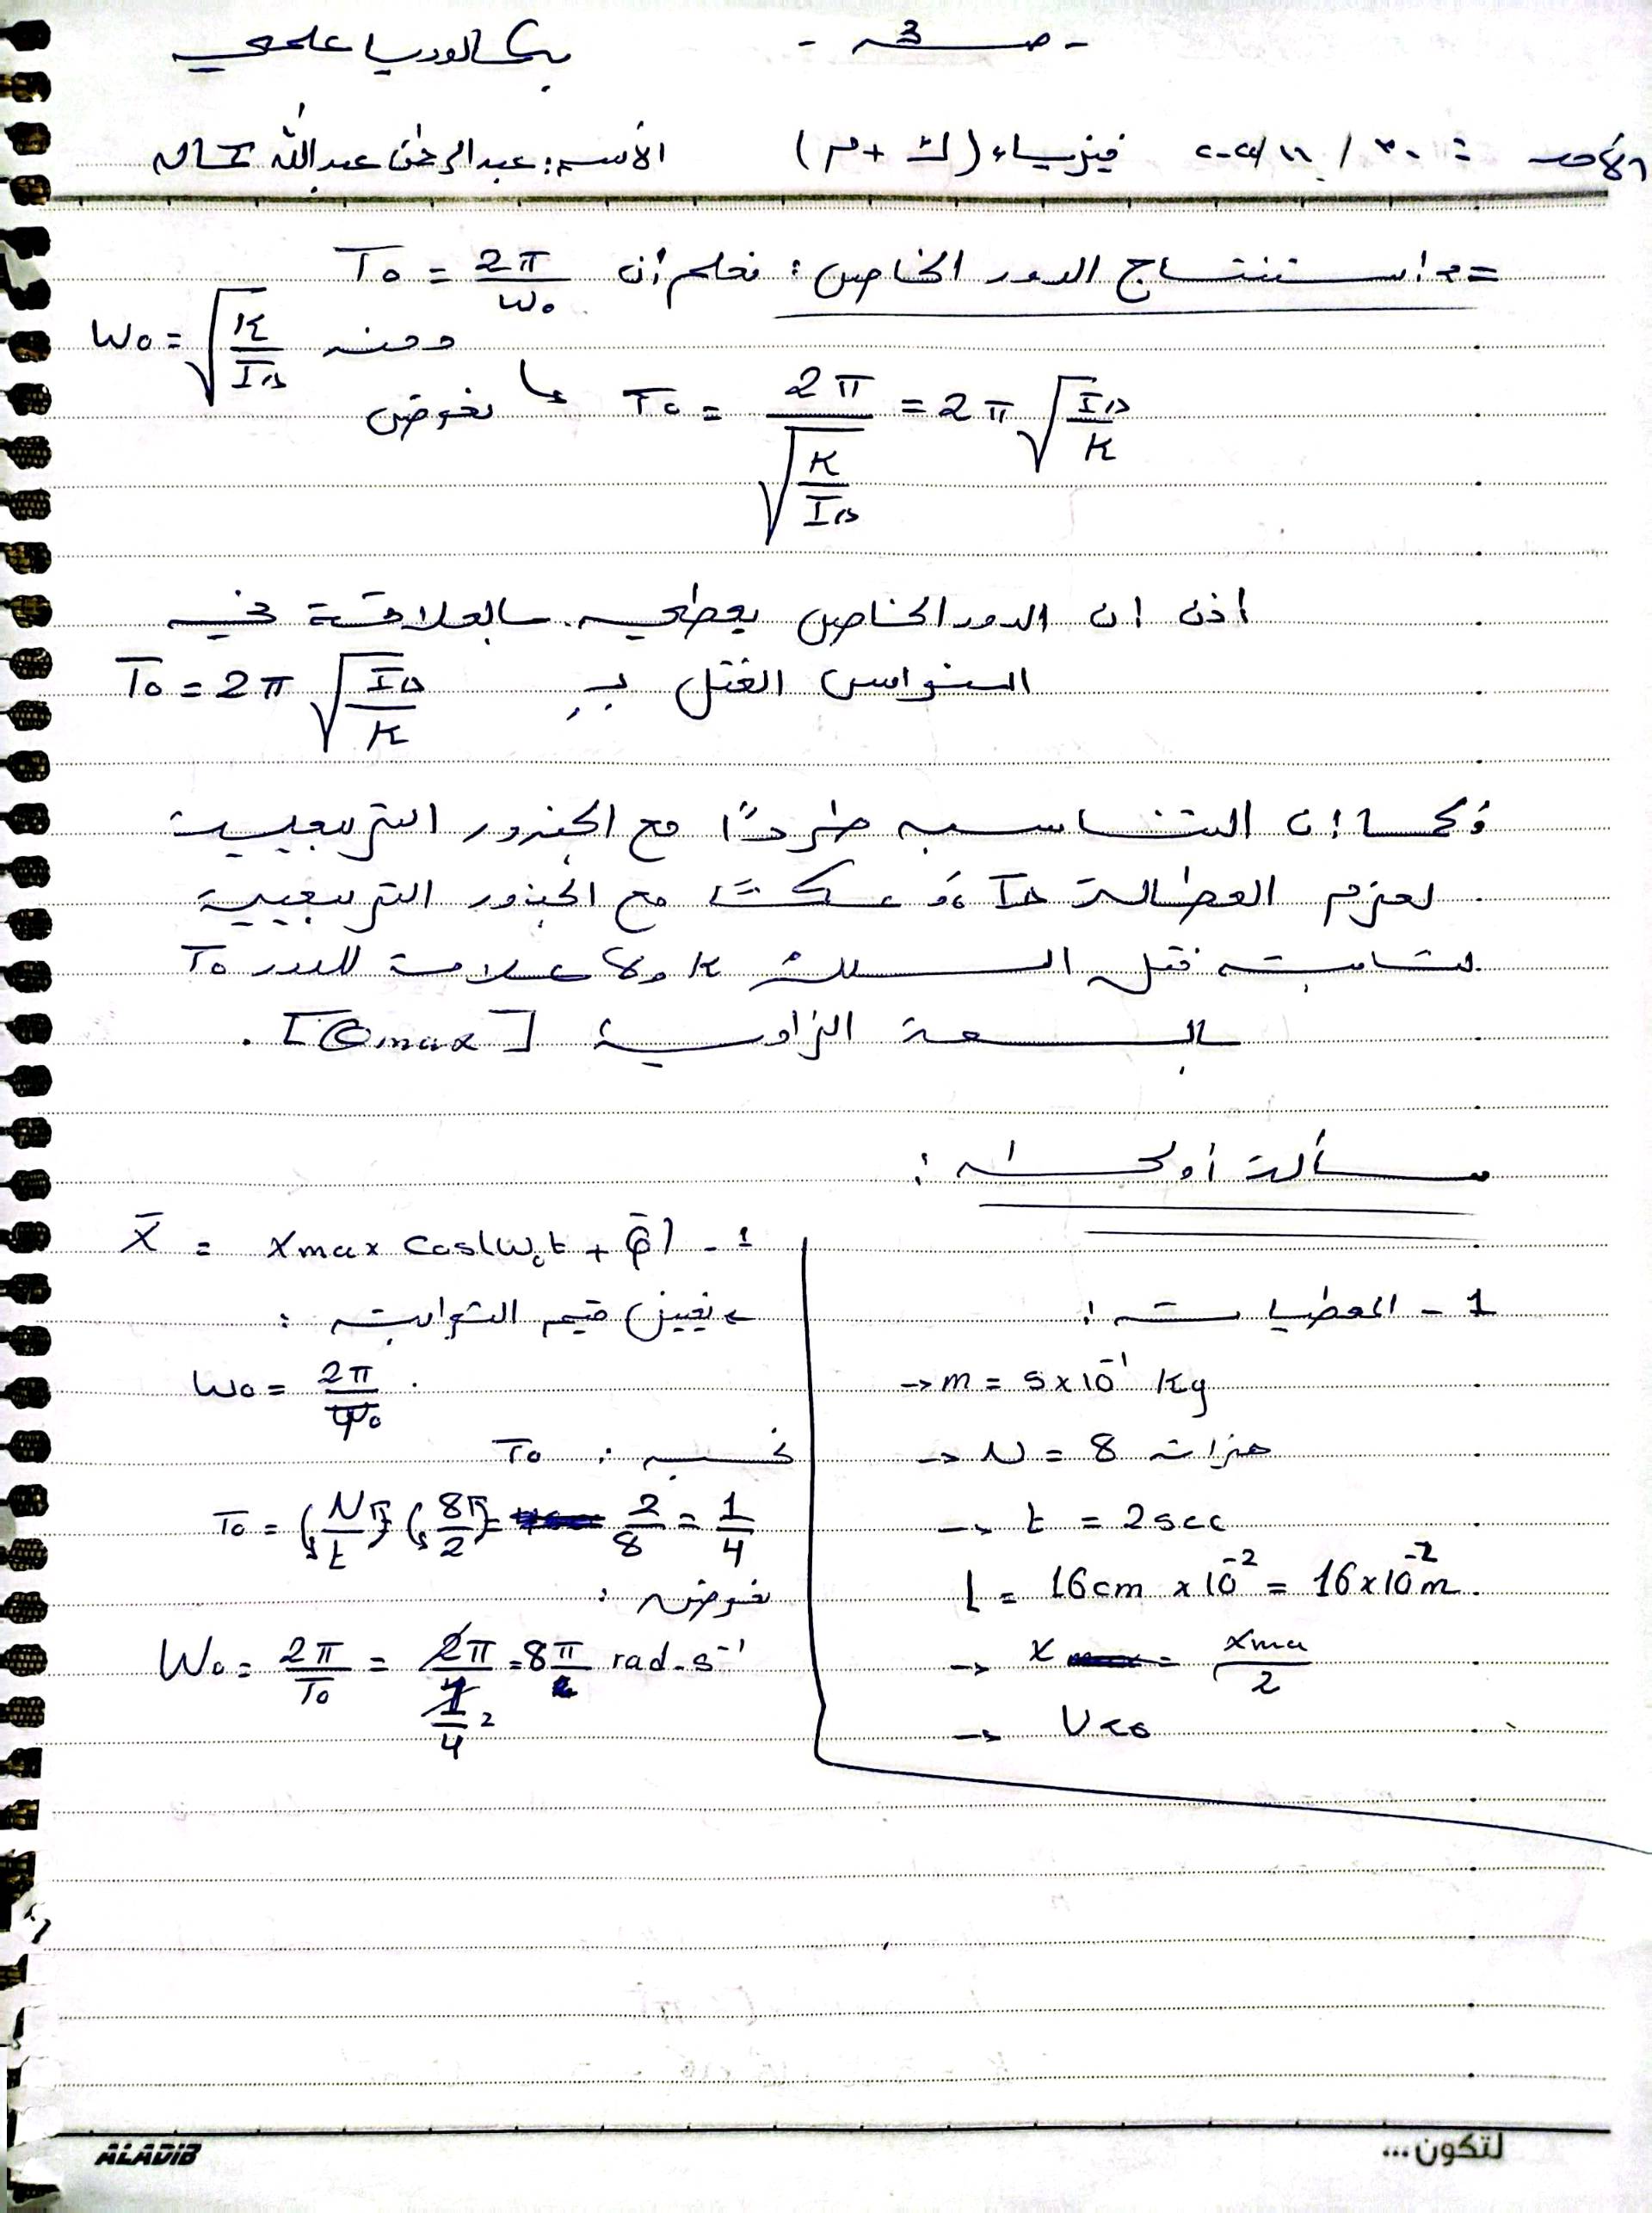 - صـ 3 ـه - بكالوريا علمي
الأحد : ٣٠ / ١١ فيزياء (ك + م) الأسم: عبد الرحمن عبد الله
=> استنتاج الدور الخاص : نعلم أن T₀ = 2π/ω₀
ومنه ω₀ = √(K/I△)
نعوض T₀ = 2π/√(K/I△) = 2π √(I△/K)
اذن ان الدور الخاص يعطى بالعلاقة في
النواس الفتل بـ T₀ = 2π √(I△/K)
وكما ان التناسب طردًا مع الجذور التربيعية
لعزم العطالة I△ و عكسًا مع الجذور التربيعية
لثابت فتل السلك K ولا علاقة للدور T₀
بالسعة الزاوية [θmax] .
مسألة أولى :
1 - المعطيات :
-> m = 5x10⁻¹ Kg
-> N = 8 هزات
-> t = 2sec
l = 16cm x10⁻² = 16x10⁻²m
-> x = xma/2
-> V<0
x̄ = xmax cos(ω₀t + φ̄) - 1
تعيين قيم الثوابت :
ω₀ = 2π/T₀
نحسب : T₀
T₀ = 2/8 = 1/4
نعوض :
W₀ = 2π/T₀ = 2π/(1/4) = 8π rad.s⁻¹
ALADIB
لتكون ...